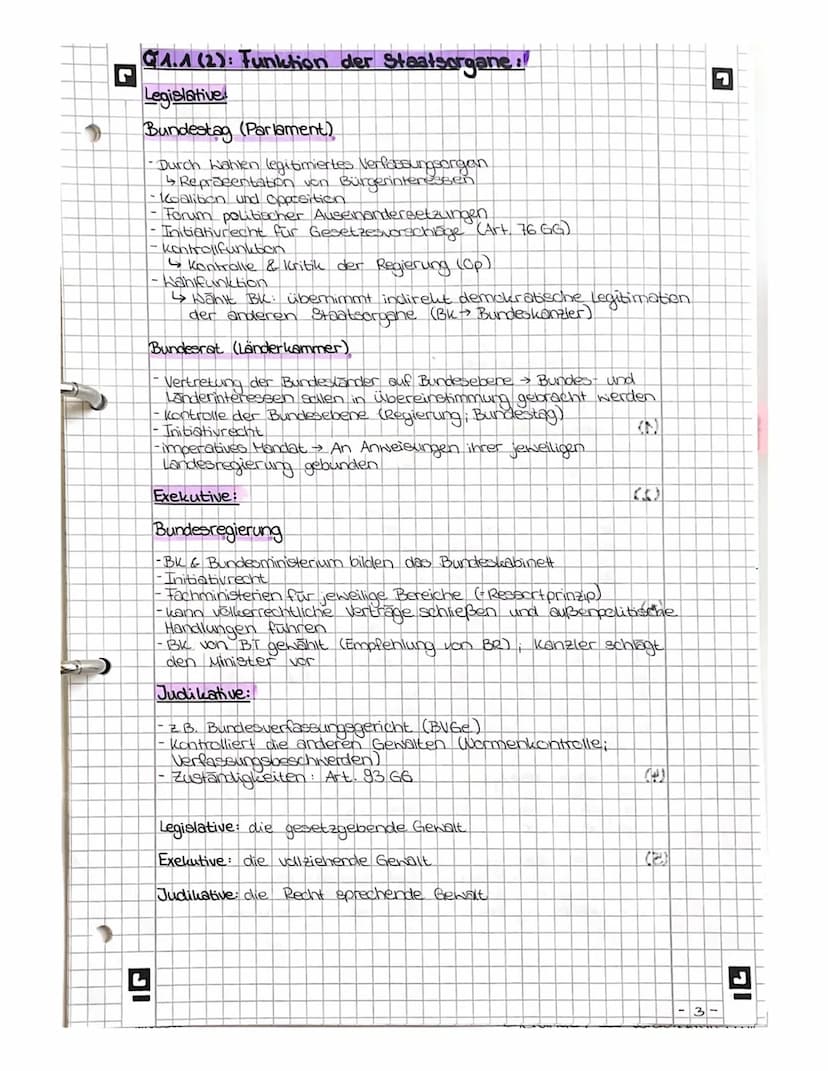 Q1.1 (2): Funktion der Staatsorgane:
Legislative:
Bundestag (Parlament)
- Durch Wahlen legitimiertes Verfassungsorgan
↳ Repräsentation von Bürgerinteressen
- Koalition und Opposition
- Forum politischer Auseinandersetzungen
- Initiativrecht für Gesetzesvorschläge (Art. 76 GG)
- Kontrollfunktion
↳ Kontrolle & Kritik der Regierung (Op)
- Wahlfunktion
↳ Wählt BK: übernimmt indirekt demokratische Legitimation
der anderen Staatsorgane (BK → Bundeskanzler)
Bundesrat (Länderkammer)
- Vertretung der Bundesländer auf Bundesebene → Bundes- und
Länderinteressen sollen in übereinstimmung gebracht werden
- Kontrolle der Bundesebene (Regierung; Bundestag)
- Initiativrecht
- imperatives Mandat → An Anweisungen ihrer jeweiligen
Landesregierung gebunden
Exekutive:
Bundesregierung
- BK & Bundesministerium bilden das Bundeskabinett
- Initiativrecht
- Fachministerien für jeweilige Bereiche (→ Ressortprinzip)
- kann völkerrechtliche Verträge schließen und außenpolitische
Handlungen führen
- BK von BT gewählt (Empfehlung von BR); Kanzler schlägt
den Minister vor
Judikative:
- z.B. Bundesverfassungsgericht (BVGe)
- Kontrolliert die anderen Gewalten (Normenkontrolle;
Verfassungsbeschwerden)
- Zuständigkeiten: Art. 93 GG
Legislative: die gesetzgebende Gewalt
Exekutive: die vollziehende Gewalt
Judikative: die Recht sprechende Gewalt
- 3 -